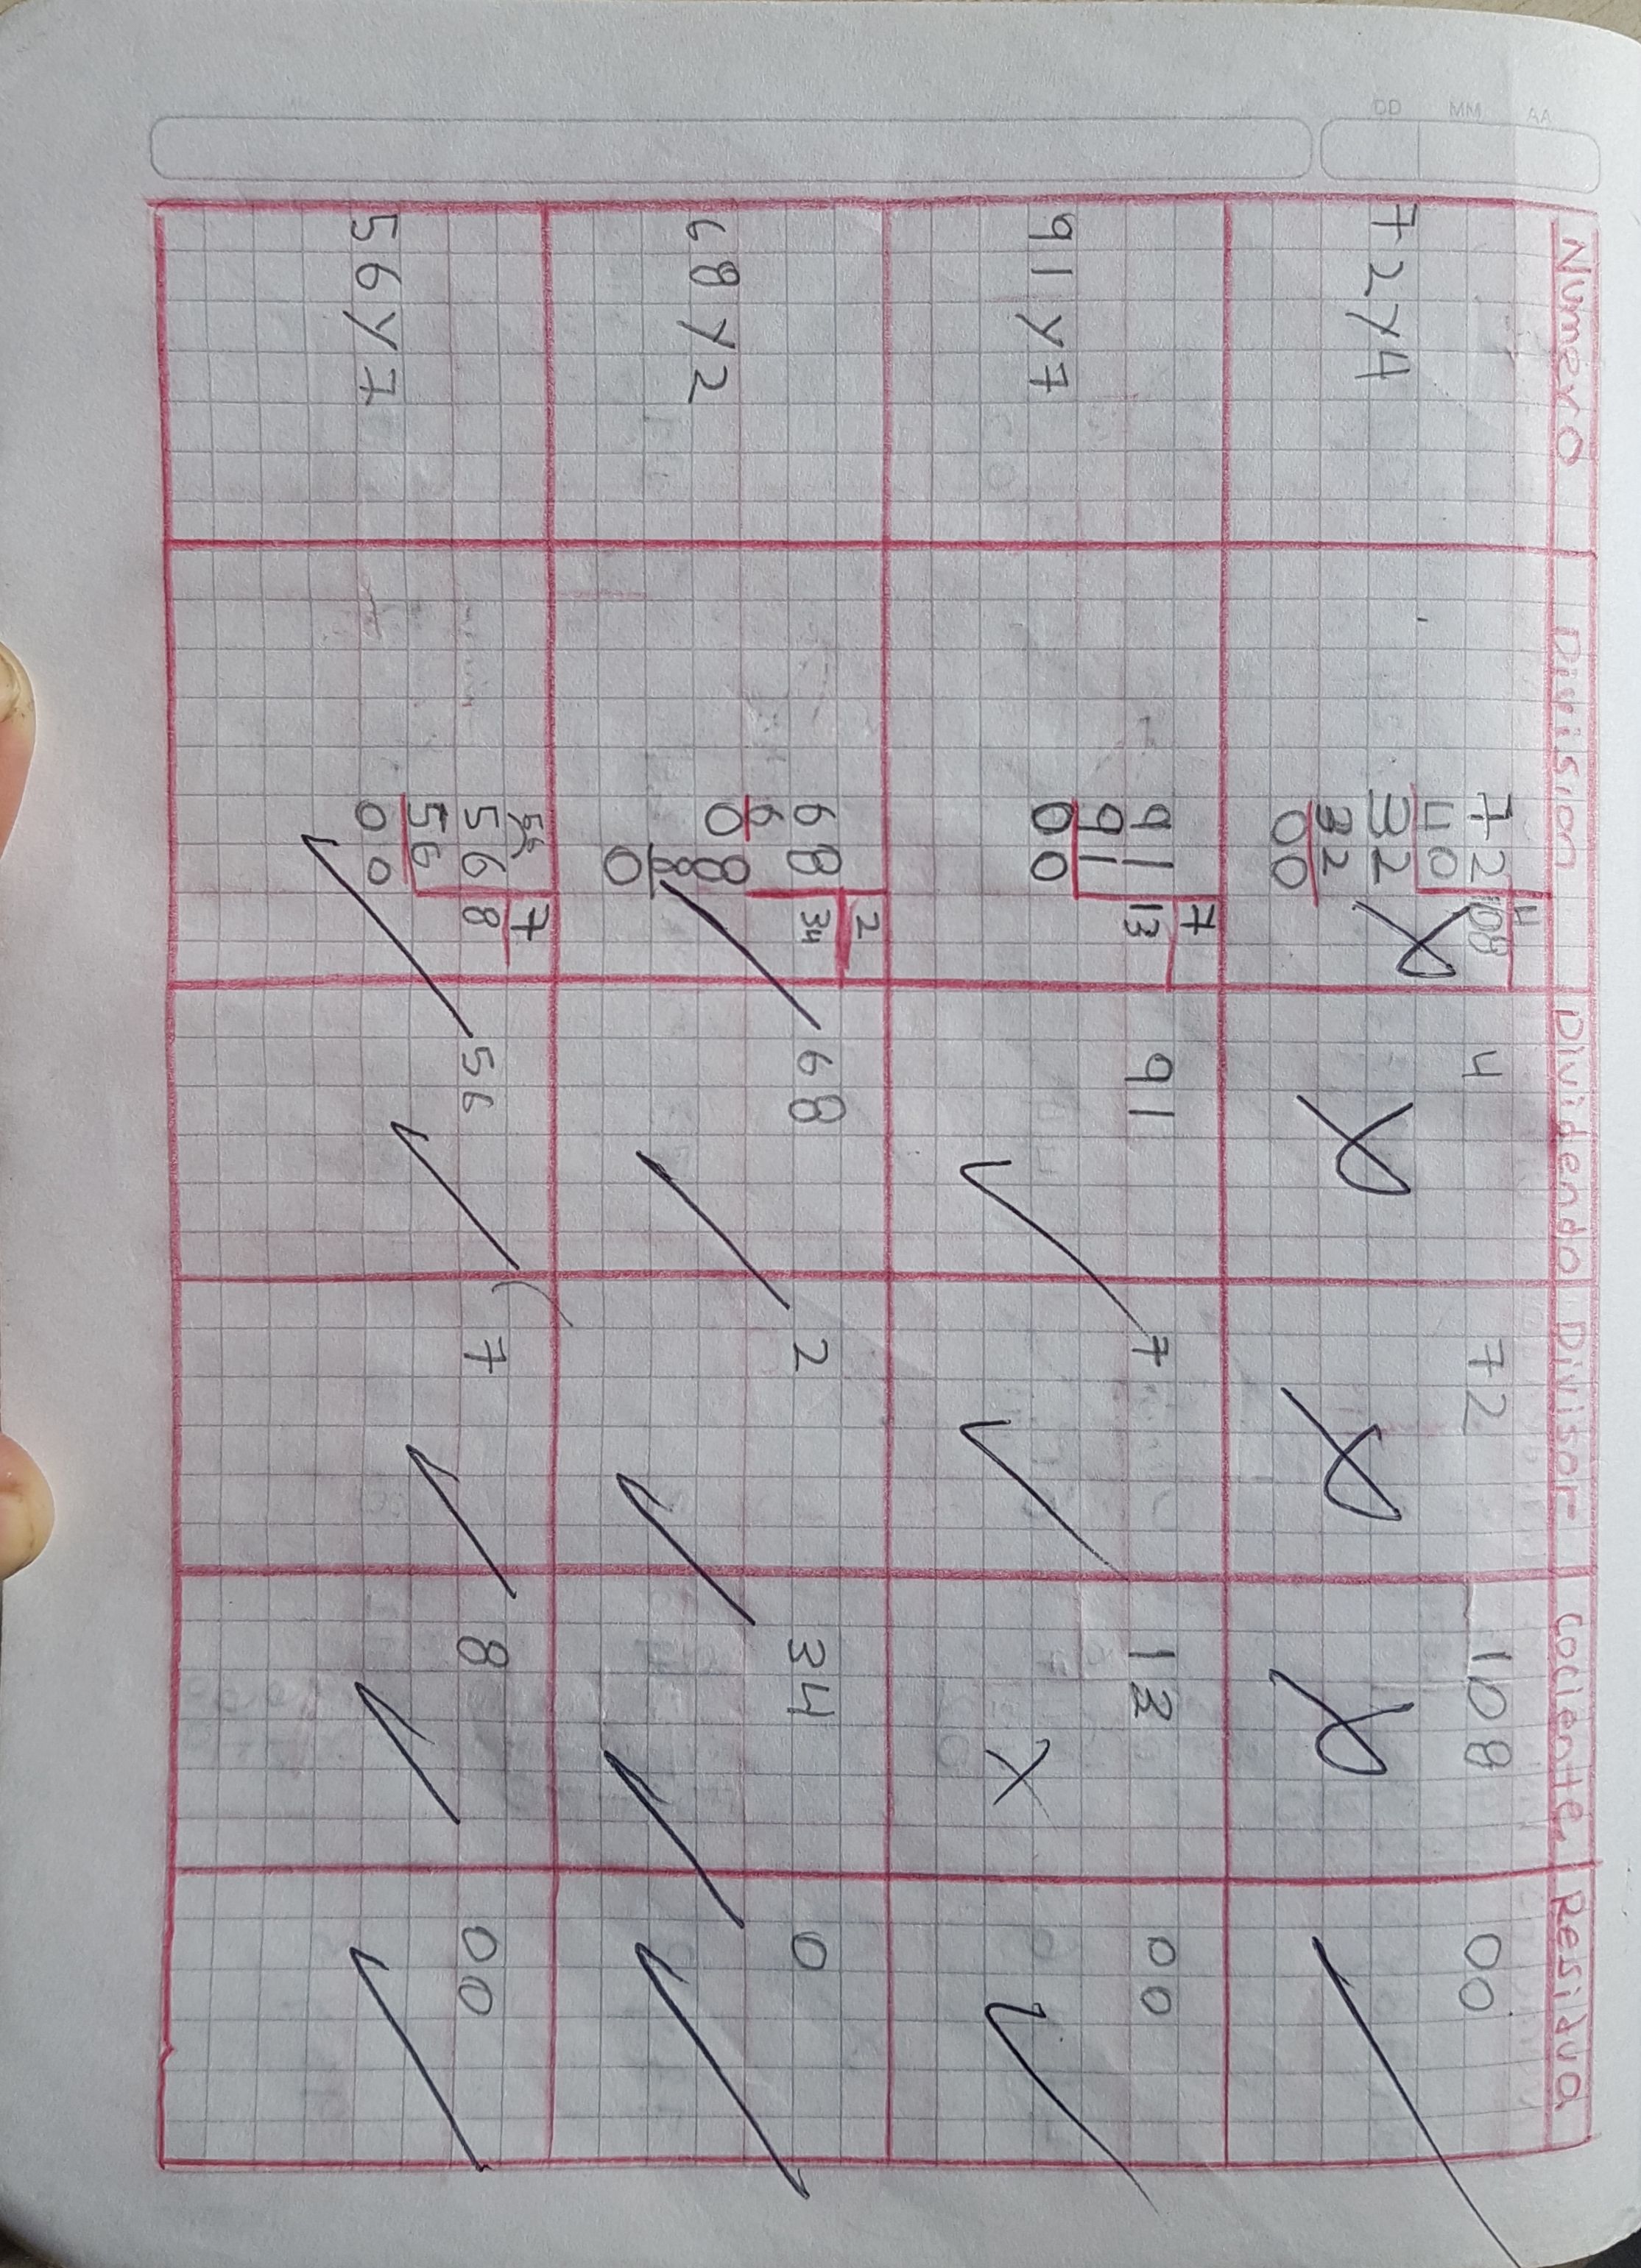 DD MM AA
Numero Division Dividendo Divisor Cociente Residuo
72 y 4
72 4
40 108
32
32
00
4 72 108 00
91 y 7
91 7
91 13
00
91 7 13 00
68 y 2
68 2
6 34
08
8
0
68 2 34 0
56 y 7
56 7
56 8
00
56 7 8 00